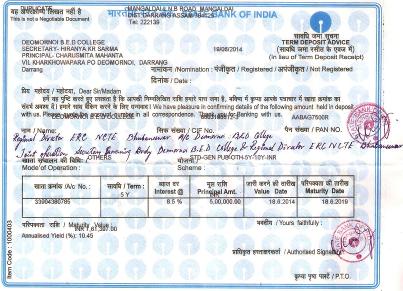 DUPLICATE
यह अपरक्राम्य लिखत नहीं है
This is not a Negotiable Document
भारतीय
BANK OF INDIA
MANGALDAI L.N.B ROAD, MANGALDAI
DIST DARRANG ASSAM
Tel: 222139
DEOMORNOI B.E.D COLLEGE
SECRETARY- HIRANYA KR SARMA
PRINCIPAL- CHARUSMITA MAHANTA
VIL KHARKHOWAPARA PO DEOMORNOI, DARRANG
Darrang
19/06/2014
सावधि जमा सूचना
TERM DEPOSIT ADVICE
(सावधि जमा रसीद के एवज में)
(In lieu of Term Deposit Receipt)
नामांकन /Nomination : पंजीकृत / Registered / अपंजीकृत / Not Registered
दिनांक / Date :
प्रिय महोदय / महोदया, Dear Sir/Madam,
We have pleasure in confirming details of the following amount held in deposit
with us. Please quote the customer number in all correspondence. Thank you for Banking with us.
DEOMORNOI B.E.D COLLEGE
AABAG7500R
नाम / Name / सिफ़ संख्या / CIF No. पैन संख्या / PAN NO.
Regional Director ERC NCTE Bhubaneswar A/C Deomornoi B.ED College
Joint A/c Secretary Governing Body Deomornoi B.E.D College & Regional Director ERC NCTE Bhubaneswar
खाता संचालन की विधि: OTHERS योजना: STD-GEN PUB-OTH-5Y-10Y-INR
Mode of Operation : Scheme :
खाता क्रमांक / A/c No. : सावधि / Term : ब्याज दर Interest @ मूल राशि Principal Amt. जारी करने की तारीख Value Date परिपक्वता की तारीख Maturity Date
33904380785 5 Y 8.5 % 5,00,000.00 18.6.2014 18.6.2019
परिपक्वता राशि / Maturity Value : INR 7,61,397.00
Annualised Yield (%): 10.45
भवदीय / Yours faithfully :
प्राधिकृत हस्ताक्षरकर्ता / Authorised Signatory
कृपया पृष्ठ पलटें / P.T.O.
Item Code : 1000403